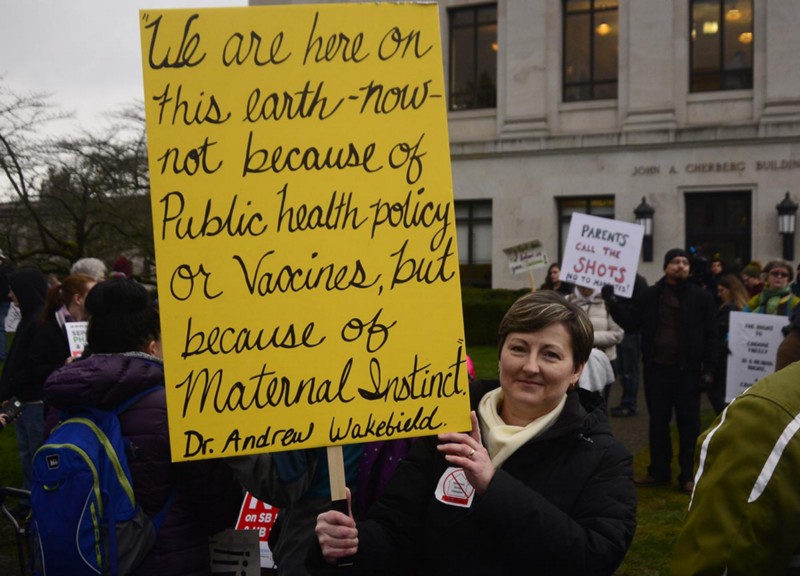 "We are here on
this earth-now-
not because of
Public health policy
or Vaccines, but
because of
Maternal Instinct."
Dr. Andrew Wakefield.
JOHN A. CHERBERG BUILDIN
PARENTS
CALL THE
SHOTS
NO TO MANDATES!
on SB